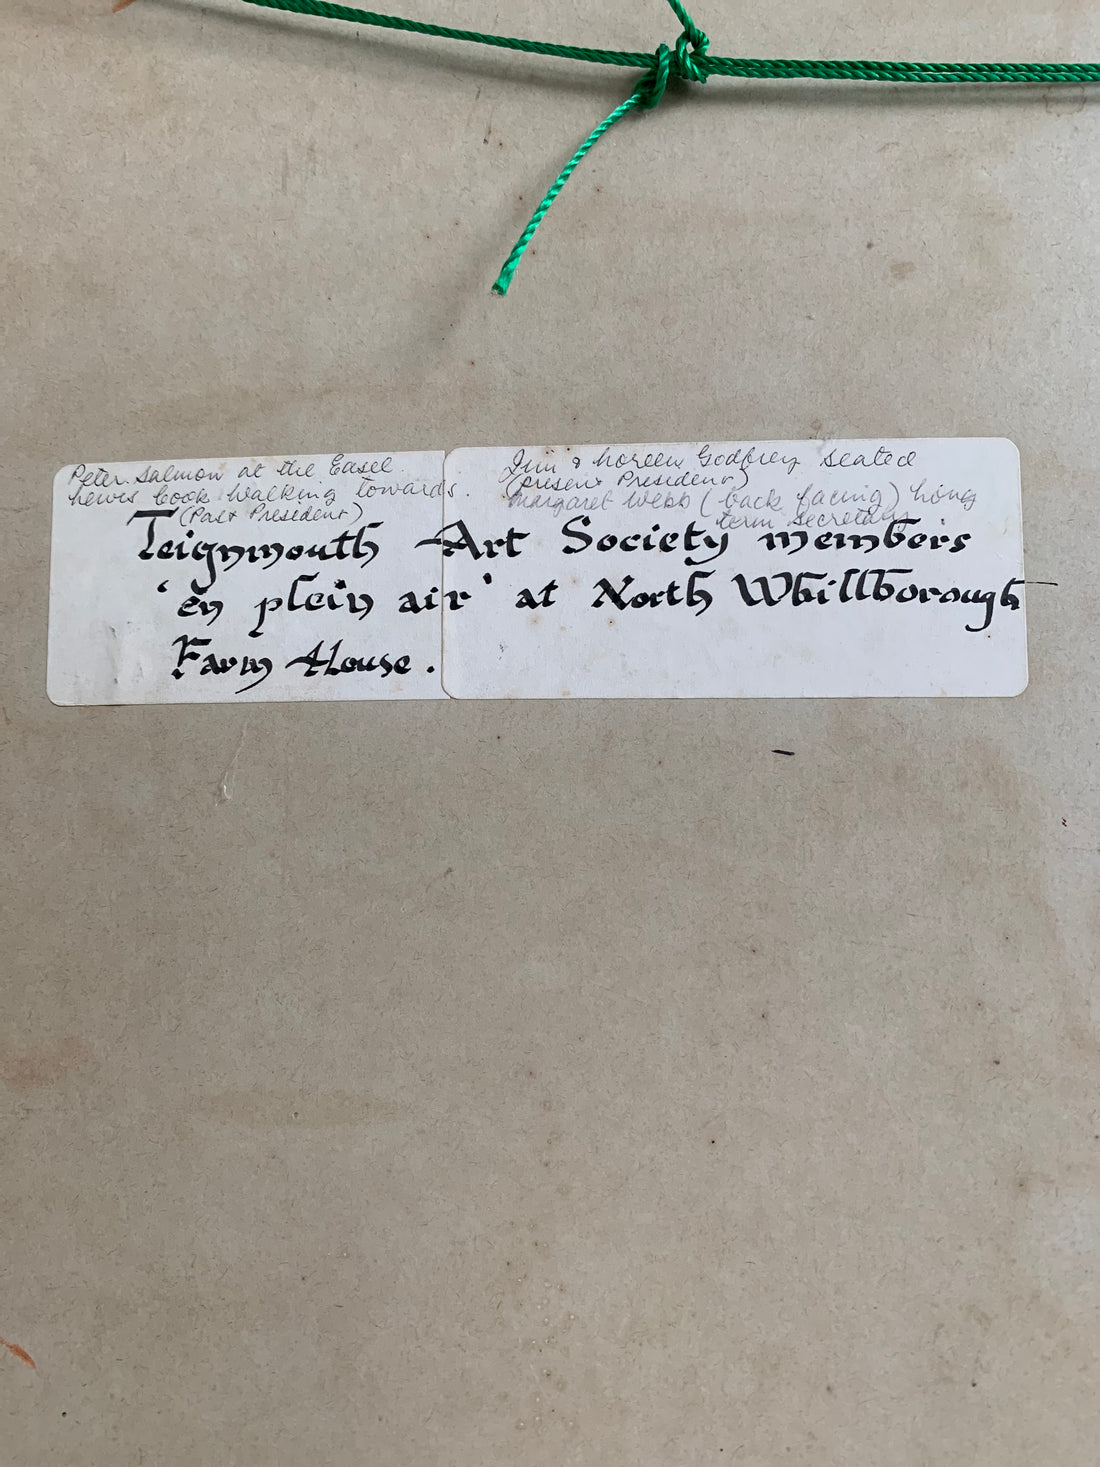 Peter Salmon at the Easel.
Lewis Cook walking towards.
(Past President)
Jim & Noreen Godfrey seated
(present President)
Margaret Webb (back facing) long
term secretary
Teignmouth Art Society members
'en plein air' at North Whillborough
Farm House.